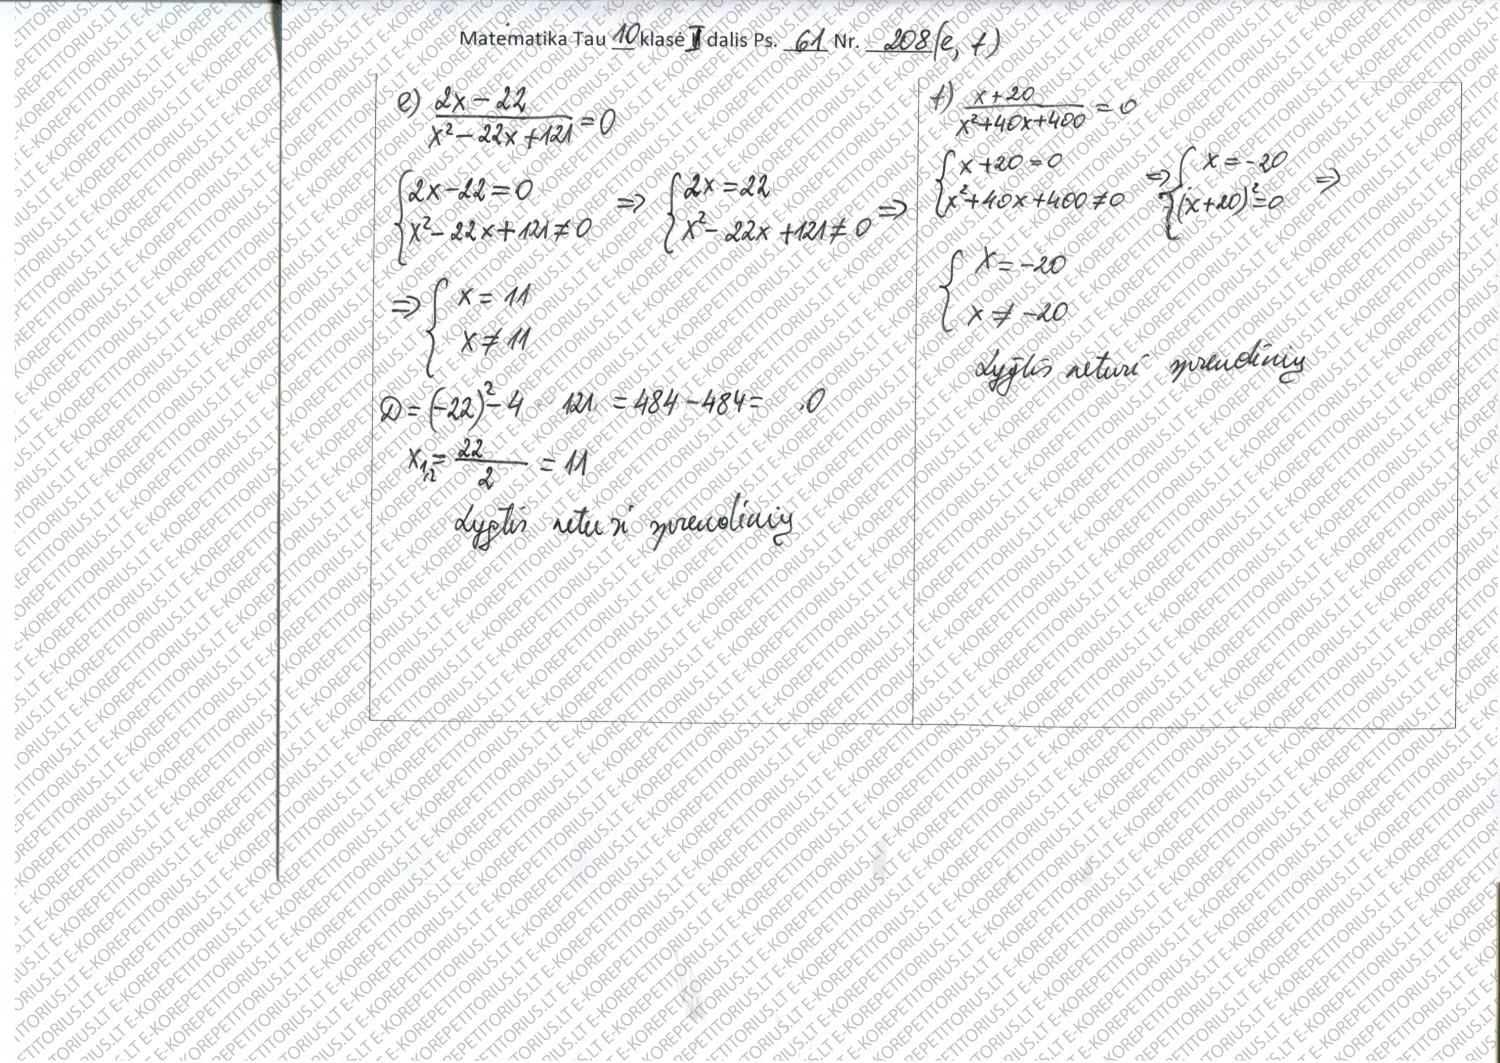 Matematika Tau 10 klasė I dalis Ps. 61 Nr. 208(e, f)
e) (2x − 22)/(x² − 22x + 121) = 0
{2x − 22 = 0
{x² − 22x + 121 ≠ 0
⇒ {2x = 22
{x² − 22x + 121 ≠ 0 ⇒
⇒ {x = 11
{x ≠ 11
D = (−22)² − 4 121 = 484 − 484 = 0
x₁,₂ = 22/2 = 11
Lygtis neturi sprendinių
f) (x+20)/(x²+40x+400) = 0
{x+20 = 0
{x²+40x+400 ≠ 0
⇒ {x = −20
{(x+20)² = 0 ⇒
{x = −20
{x ≠ −20
Lygtis neturi sprendinių
E-KOREPETITORIUS.LT